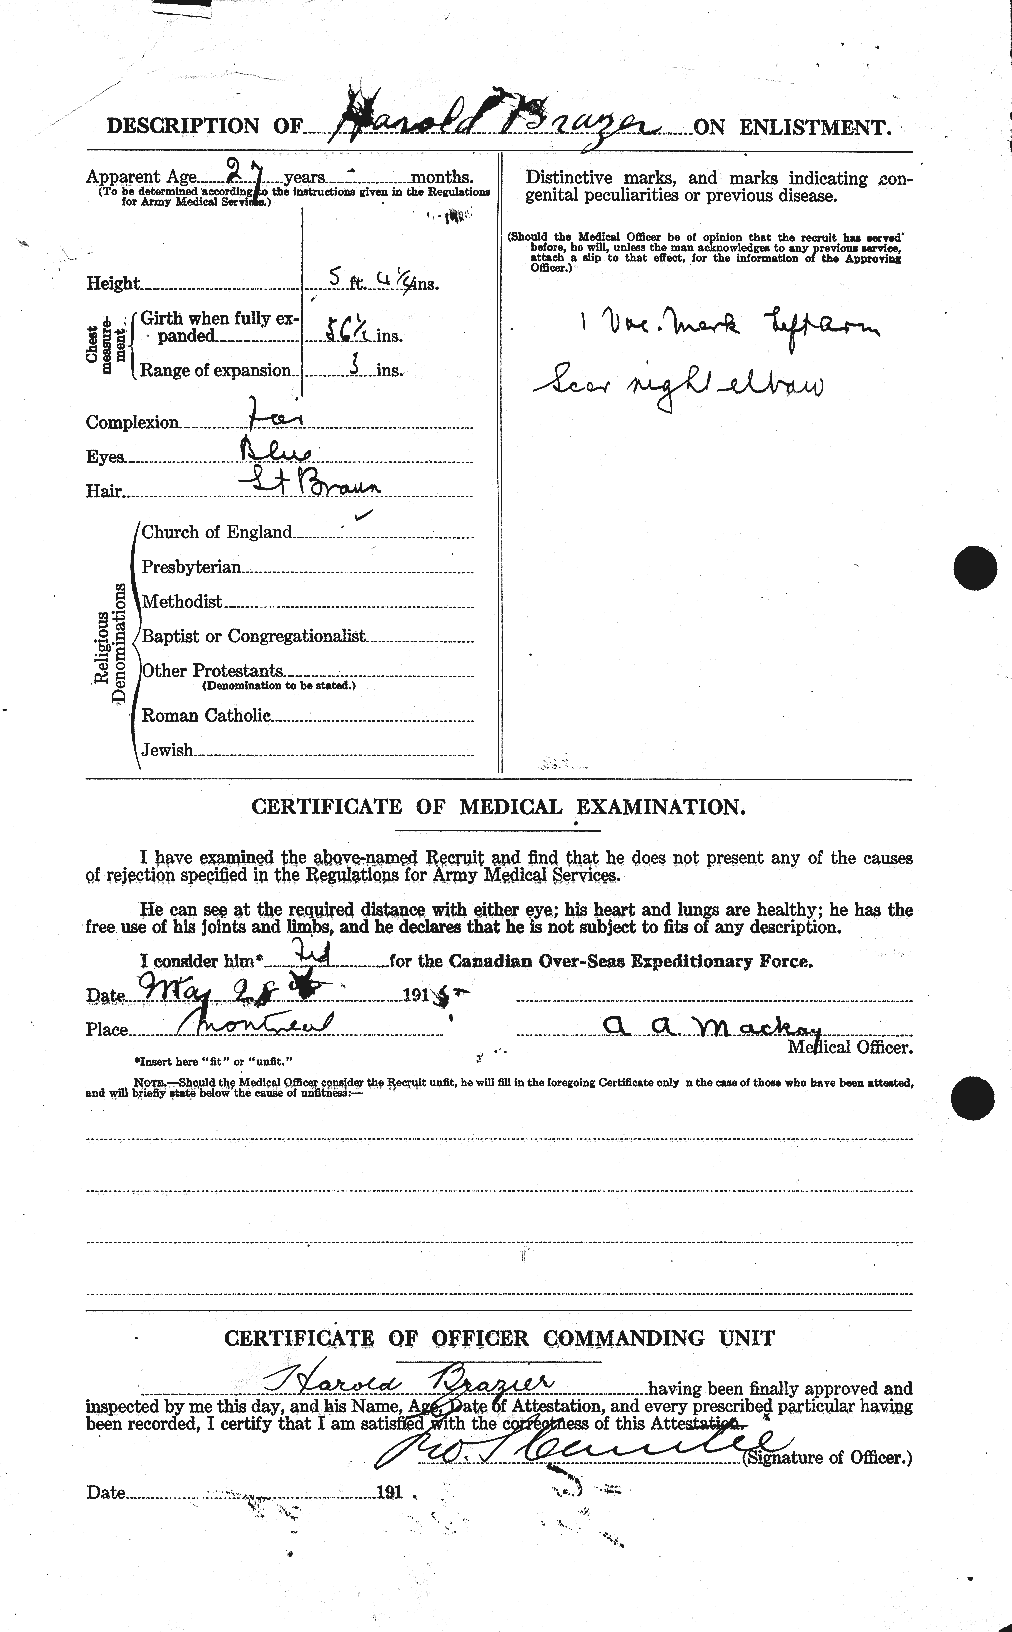 DESCRIPTION OF Harold Brazer ON ENLISTMENT.
Apparent Age 27 years - months.
(To be determined according to the instructions given in the Regulations
for Army Medical Services.)
Height 5 ft. 4 1/4 ins.
Chest measurement
Girth when fully ex-
panded 36 1/2 ins.
Range of expansion 3 ins.
Complexion Fair
Eyes Blue
Hair Lt Braun
Religious Denominations
Church of England ✓
Presbyterian
Methodist
Baptist or Congregationalist
Other Protestants
(Denomination to be stated.)
Roman Catholic
Jewish
Distinctive marks, and marks indicating con-
genital peculiarities or previous disease.
(Should the Medical Officer be of opinion that the recruit has served
before, he will, unless the man acknowledges to any previous service,
attach a slip to that effect, for the information of the Approving
Officer.)
1 Vac. Mark Left Arm
Scar right elbow
CERTIFICATE OF MEDICAL EXAMINATION.
I have examined the above-named Recruit and find that he does not present any of the causes
of rejection specified in the Regulations for Army Medical Services.
He can see at the required distance with either eye; his heart and lungs are healthy; he has the
free use of his joints and limbs, and he declares that he is not subject to fits of any description.
I consider him* Fit for the Canadian Over-Seas Expeditionary Force.
Date May 28 1915
Place Montreal A A Mackay
Medical Officer.
*Insert here "fit" or "unfit."
NOTE.—Should the Medical Officer consider the Recruit unfit, he will fill in the foregoing Certificate only n the case of those who have been attested,
and will briefly state below the cause of unfitness:—
CERTIFICATE OF OFFICER COMMANDING UNIT
Harold Brazier having been finally approved and
inspected by me this day, and his Name, Age, Date of Attestation, and every prescribed particular having
been recorded, I certify that I am satisfied with the correctness of this Attestation.
(Signature of Officer.)
Date 191